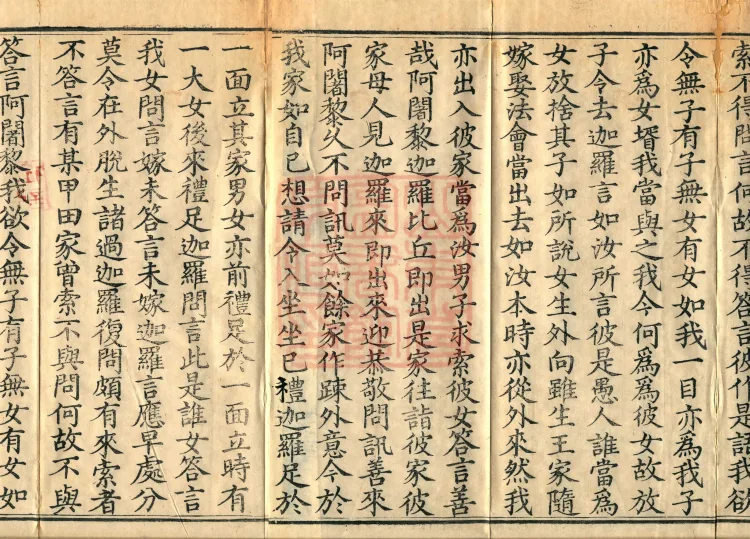 索不得問言何故不得答言彼作是語我欲
令無子有子無女有女如我一目亦為我子
亦為女壻我當與之我今何為為彼女故放
子令去迦羅言如汝所言彼是愚人誰當為
女放捨其子如所說女生外向雖生王家隨
嫁娶法會當出去如汝本時亦從外來然我
亦出入彼家當為汝男子求索彼女答言善
哉阿闍黎迦羅比丘即出是家往詣彼家彼
家母人見迦羅來即出來迎恭敬問訊善來
阿闍黎乆不問訊莫如餘家作踈外意今於
我家如自己想請令入坐坐已禮迦羅足於
一面立其家男女亦前禮足於一面立時有
一大女後來禮足迦羅問言此是誰女答言
我女問言嫁未答言未嫁迦羅言應早處分
莫令在外脫生諸過迦羅復問頗有來索者
不答言有某甲田家曾索不與問何故不與
答言阿闍黎我欲令無子有子無女有女如